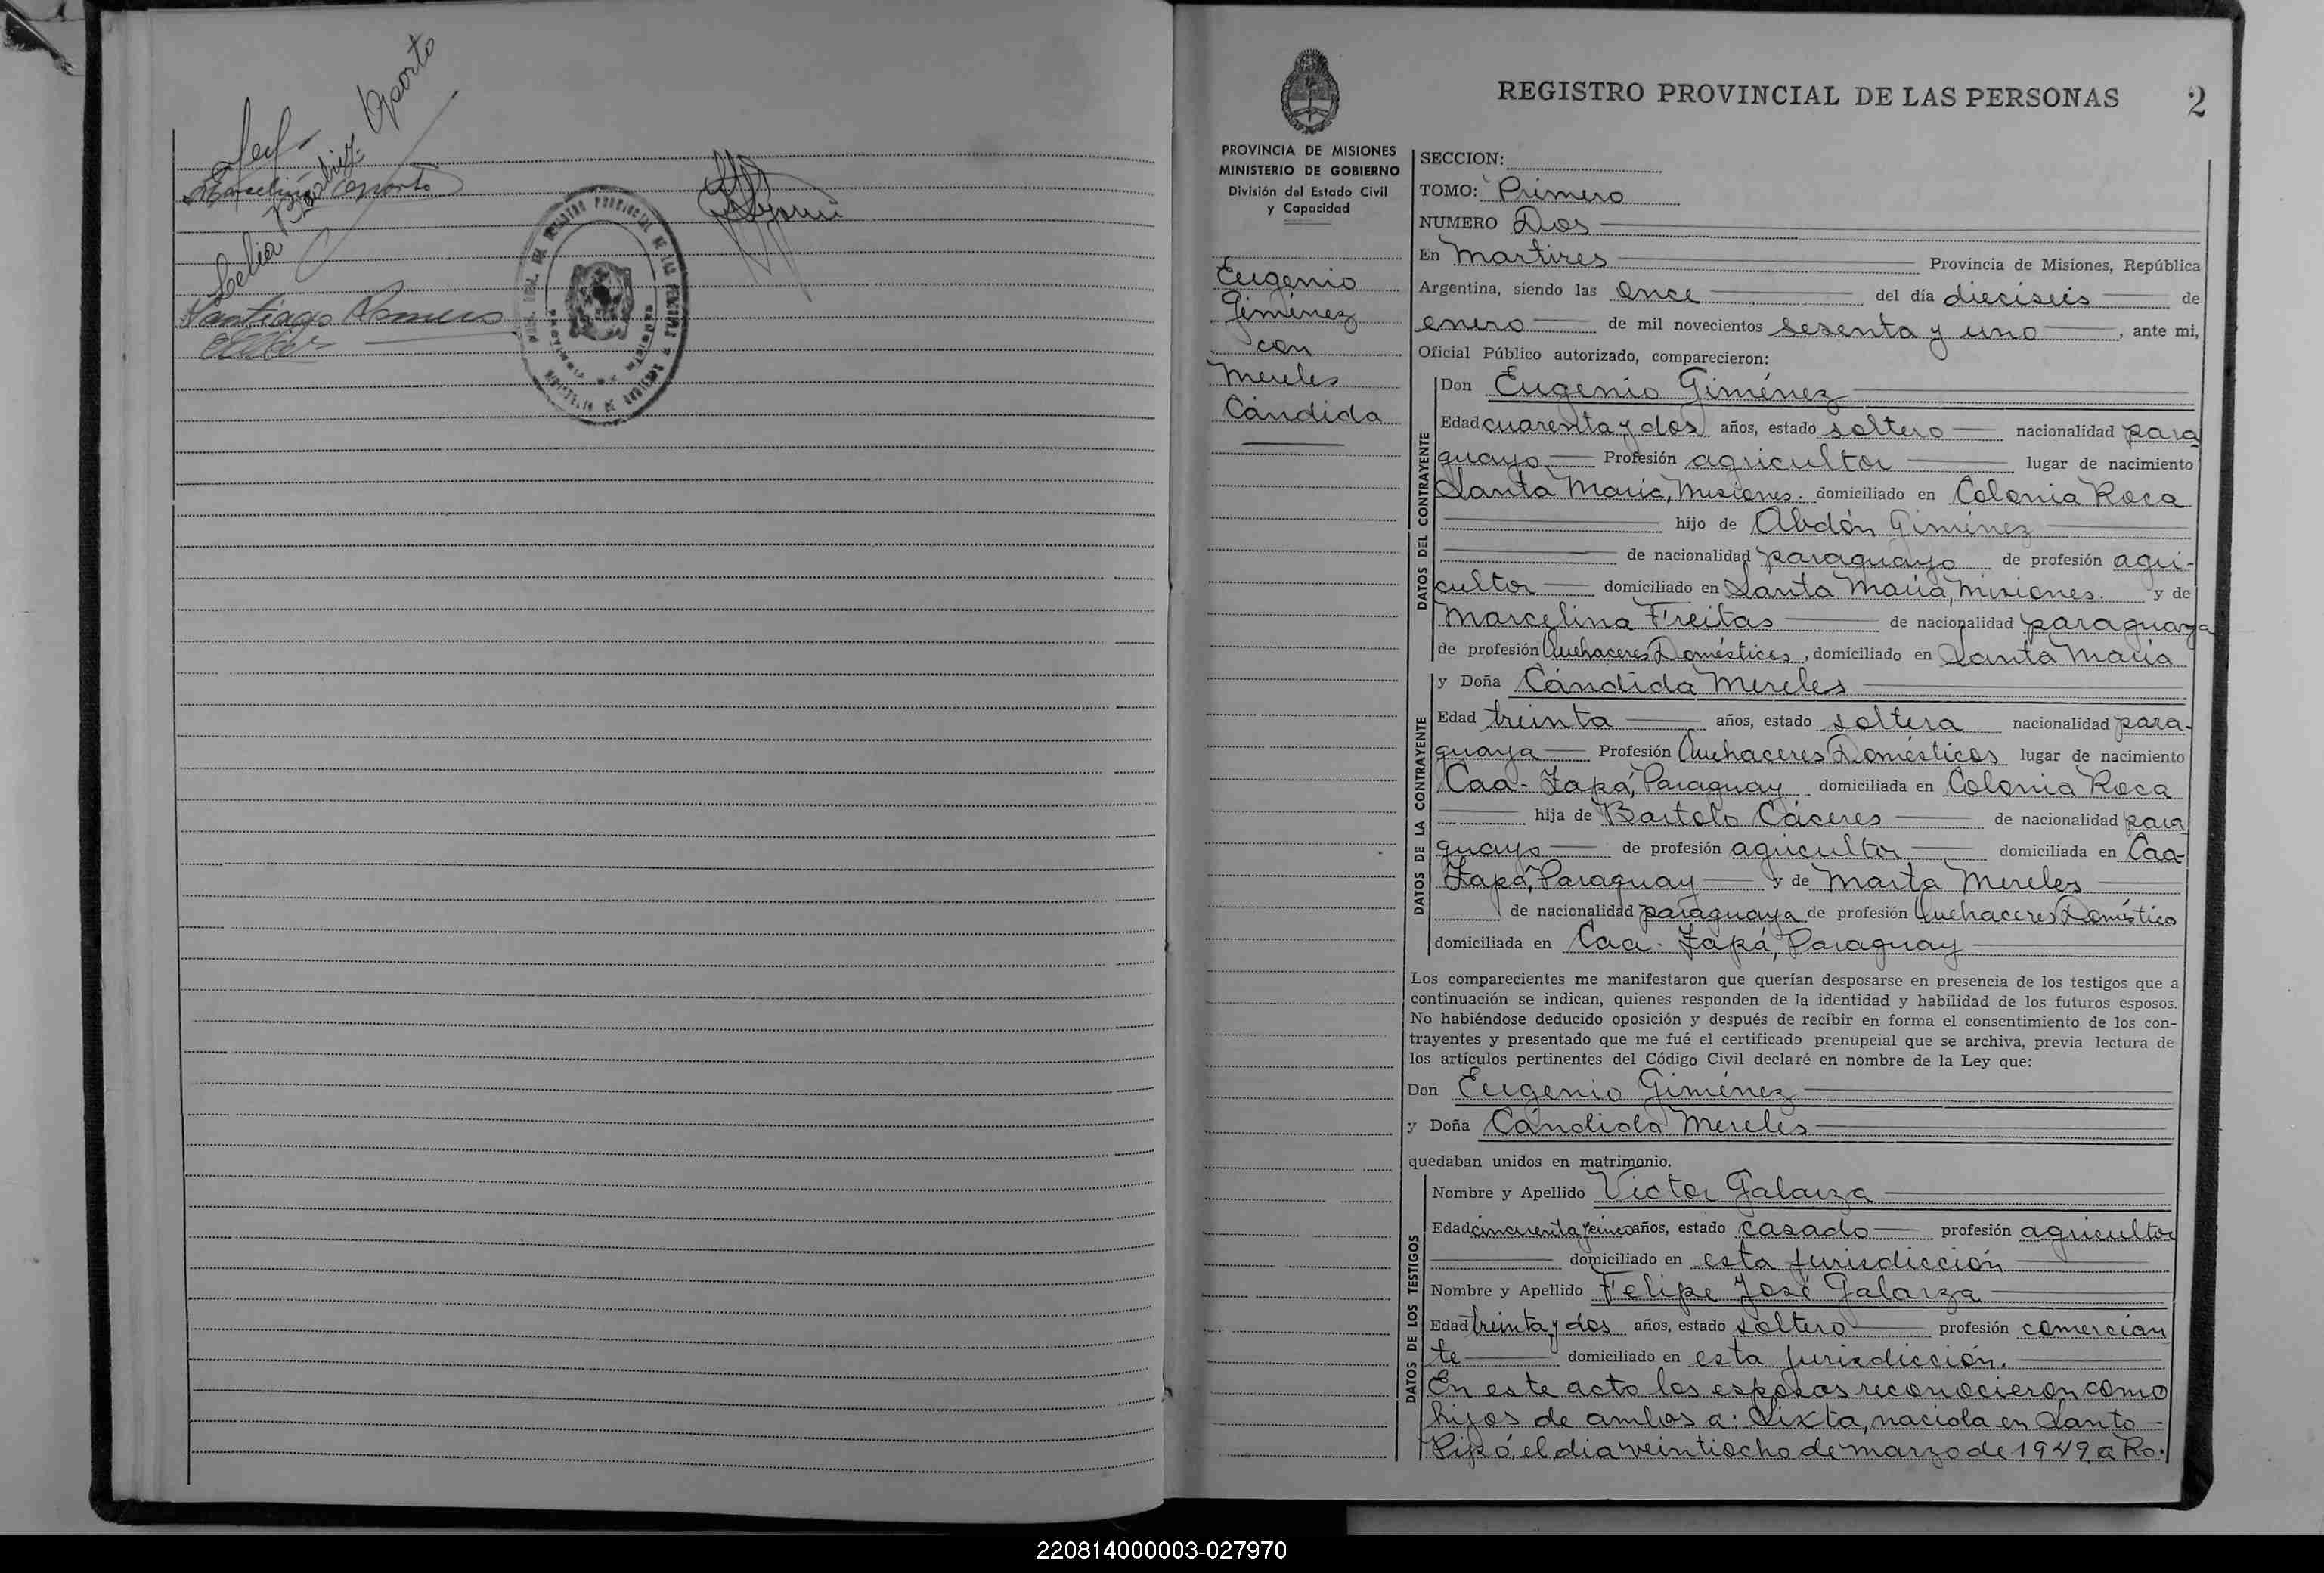 Celia Beatriz Oporto
Marcelino Oporto
Santiago Romero
REGISTRO PROVINCIAL DE LAS PERSONAS
2
PROVINCIA DE MISIONES
MINISTERIO DE GOBIERNO
División del Estado Civil
y Capacidad
Eugenio
Giménez
con
Mereles
Cándida
SECCION:
TOMO: Primero
NUMERO Dos
En Martires Provincia de Misiones, República
Argentina, siendo las once del día dieciseis de
enero de mil novecientos sesenta y uno, ante mi,
Oficial Público autorizado, comparecieron:
DATOS DEL CONTRAYENTE
Don Eugenio Giménez
Edad cuarenta y dos años, estado soltero nacionalidad para
guayo Profesión agricultor lugar de nacimiento
Santa María, Misiones. domiciliado en Colonia Roca
hijo de Abdón Giménez
de nacionalidad paraguayo de profesión agri-
cultor domiciliado en Santa María, Misiones. y de
Marcelina Freitas de nacionalidad paraguaya
de profesión Quehaceres Domésticos, domiciliado en Santa María
DATOS DE LA CONTRAYENTE
y Doña Cándida Mereles
Edad treinta años, estado soltera nacionalidad para-
guaya Profesión Quehaceres Domésticos lugar de nacimiento
Caa-Zapá, Paraguay domiciliada en Colonia Roca
hija de Bartolo Cáceres de nacionalidad para
guayo de profesión agricultor domiciliada en Caa-
Zapá, Paraguay y de Marta Mereles
de nacionalidad paraguaya de profesión Quehaceres Doméstico
domiciliada en Caa-Zapá, Paraguay
Los comparecientes me manifestaron que querían desposarse en presencia de los testigos que a
continuación se indican, quienes responden de la identidad y habilidad de los futuros esposos.
No habiéndose deducido oposición y después de recibir en forma el consentimiento de los con-
trayentes y presentado que me fué el certificado prenupcial que se archiva, previa lectura de
los artículos pertinentes del Código Civil declaré en nombre de la Ley que:
Don Eugenio Giménez
y Doña Cándida Mereles
quedaban unidos en matrimonio.
DATOS DE LOS TESTIGOS
Nombre y Apellido Victor Galarza
Edad cincuenta y cinco años, estado casado profesión agricultor
domiciliado en esta jurisdicción
Nombre y Apellido Felipe José Galarza
Edad treinta y dos años, estado soltero profesión comercian
te domiciliado en esta jurisdicción.
En este acto los esposos reconocieron como
hijos de ambos a: Sixta, nacida en Santo
Pipó, el dia veintiocho de marzo de 1949, a Ro-
220814000003-027970